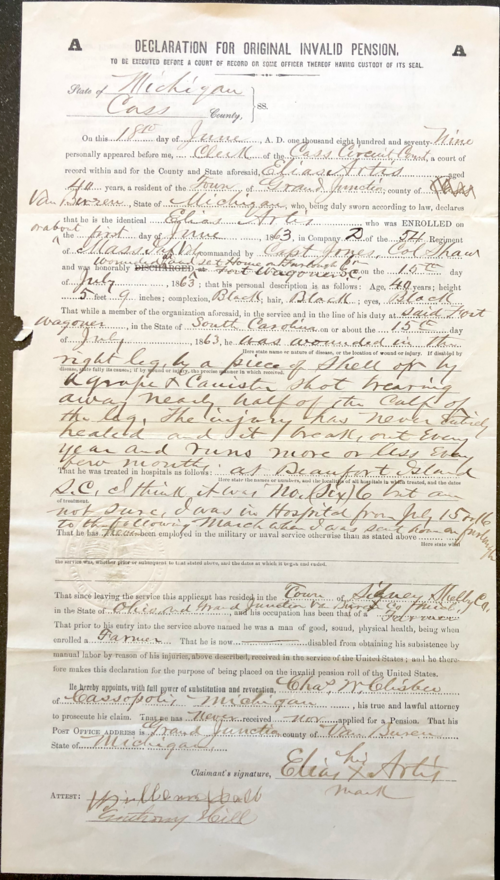 A DECLARATION FOR ORIGINAL INVALID PENSION, A
TO BE EXECUTED BEFORE A COURT OF RECORD OR SOME OFFICER THEREOF HAVING CUSTODY OF ITS SEAL.
State of Michigan
Cass County, } ss.
On this 18th day of June, A. D. one thousand eight hundred and seventy-Nine
personally appeared before me, Clerk of the Cass Circuit Court, a court of
record within and for the County and State aforesaid, Elias Artis aged
40 years, a resident of the Town of Grand Junction, county of Cass
Van Buren, State of Michigan, who, being duly sworn according to law, declares
that he is the identical Elias Artis who was ENROLLED on
or about
the first day of June, 1863, in Company D of the 54 Regiment
of Mass Vol commanded by Capt Jones, Col Shaw
wounded at
and was honorably DISCHARGED Fort Wagoner S.C. on the 15th day
of July 1863; that his personal description is as follows: Age, 40 years; height
5 feet 9 inches; complexion, Black; hair, Black; eyes, Black
That while a member of the organization aforesaid, in the service and in the line of his duty at said Fort
Wagoner, in the State of South Carolina on or about the 15th day
of July, 1863, he was wounded in the
Here state name or nature of disease, or the location of wound or injury. If disabled by
right leg, by a piece of shell or by
disease, state fully its causes; if by wound or injury, the precise manner in which received.
a grape & canister shot tearing
away nearly half of the calf of
the leg. The injury has never entirely
healed and it breaks out every
year and runs more or less every
few months.
That he was treated in hospitals as follows: at Beaufort Island
Here state the names or numbers, and the localities of all hospitals in which treated, and the dates
S.C, I think it was No. (six) 6 but am
of treatment.
not sure, I was in Hospital from July 15 or 16
to the following March when I was sent home on furlough
That he has been employed in the military or naval service otherwise than as stated above
Here state what
the service was, whether prior or subsequent to that stated above, and the dates at which it began and ended.
That since leaving the service this applicant has resided in the Town of Sidney Shelby Co.
in the State of Ohio and Grand Junction Van Buren Co Mich, and his occupation has been that of a Farmer
That prior to his entry into the service above named he was a man of good, sound, physical health, being when
enrolled a Farmer. That he is now disabled from obtaining his subsistence by
manual labor by reason of his injuries, above described, received in the service of the United States; and he there-
fore makes this declaration for the purpose of being placed on the invalid pension roll of the United States.
He hereby appoints, with full power of substitution and revocation, Chas W Clisbee
of Cassopolis Michigan, his true and lawful attorney
to prosecute his claim. That he has Never received nor applied for a Pension. That his
POST OFFICE ADDRESS is Grand Junction county of Van Buren
State of Michigan
Claimant's signature, Elias his X Artis
mark
ATTEST:
Anthony Hill